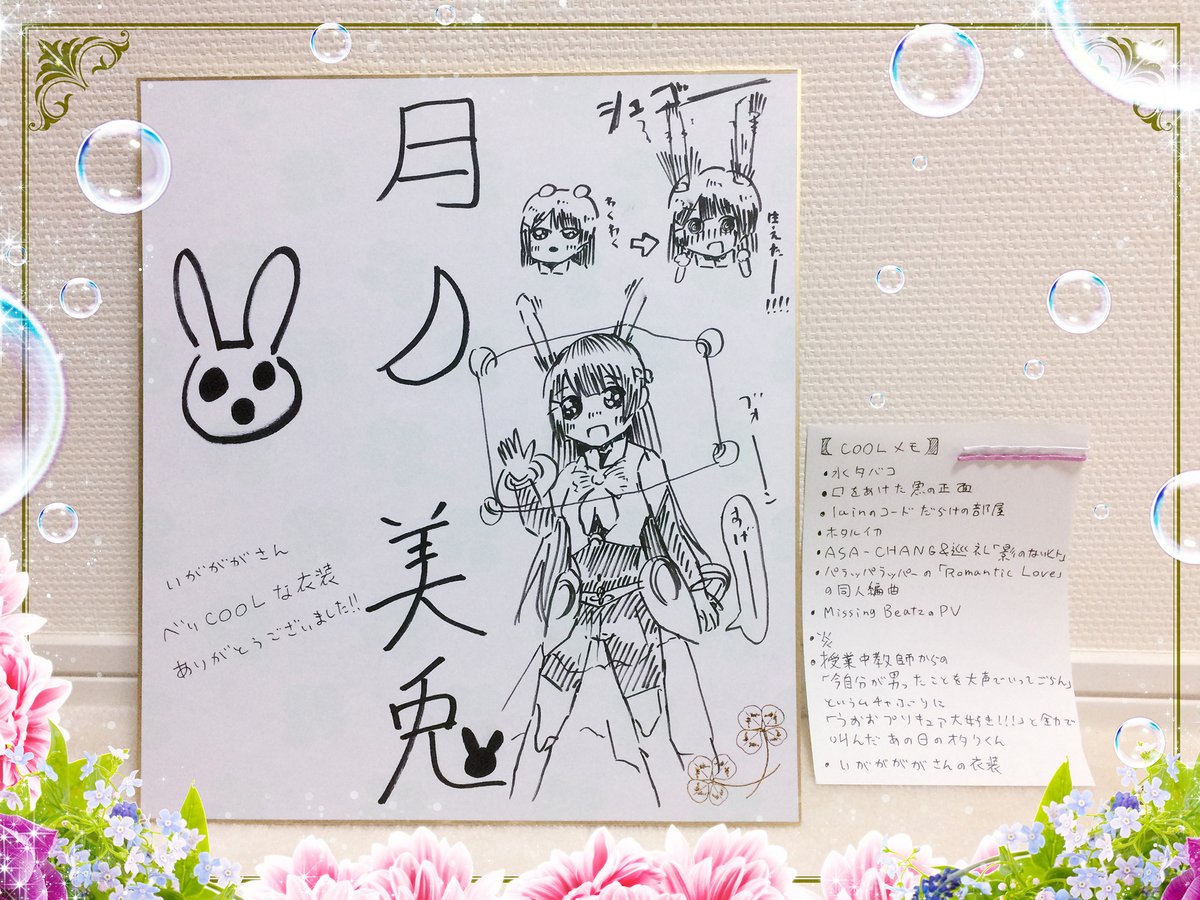 月ノ美兎
いがががさん
ベリ COOL な衣装
ありがとうございました!!
シュゴー
わくわく
生えたー!!!!
ブォーン
すげー
【COOLメモ】
・水タバコ
・口をあけた
の正面
・lainのコードだらけの部屋
・ホタルイカ
・ASA-CHANG&巡礼「影のないヒト」
・パラッパラッパーの「Romantic Love」
の同人編曲
・Missing BeatzのPV
・炎
・授業中教師からの
「今自分が
ったことを大声でいってごらん」
というムチャぶりに
「うおおプリキュア大好き!!!」と全力で
叫んだ あの日のオタクくん
・いががががさんの衣装